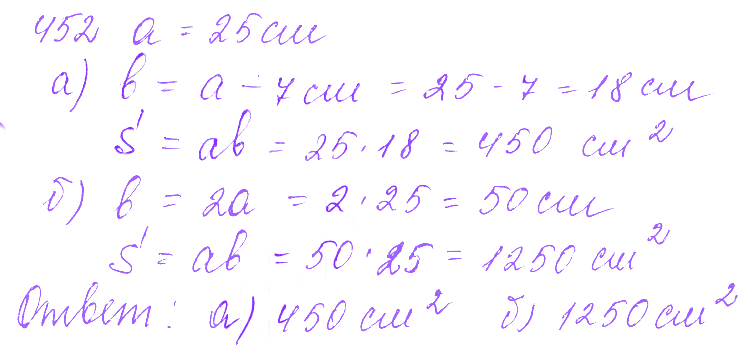 452 a = 25 см
а) b = a - 7 см = 25 - 7 = 18 см
S = ab = 25 · 18 = 450 см²
б) b = 2a = 2 · 25 = 50 см
S = ab = 50 · 25 = 1250 см²
Ответ: а) 450 см² б) 1250 см²